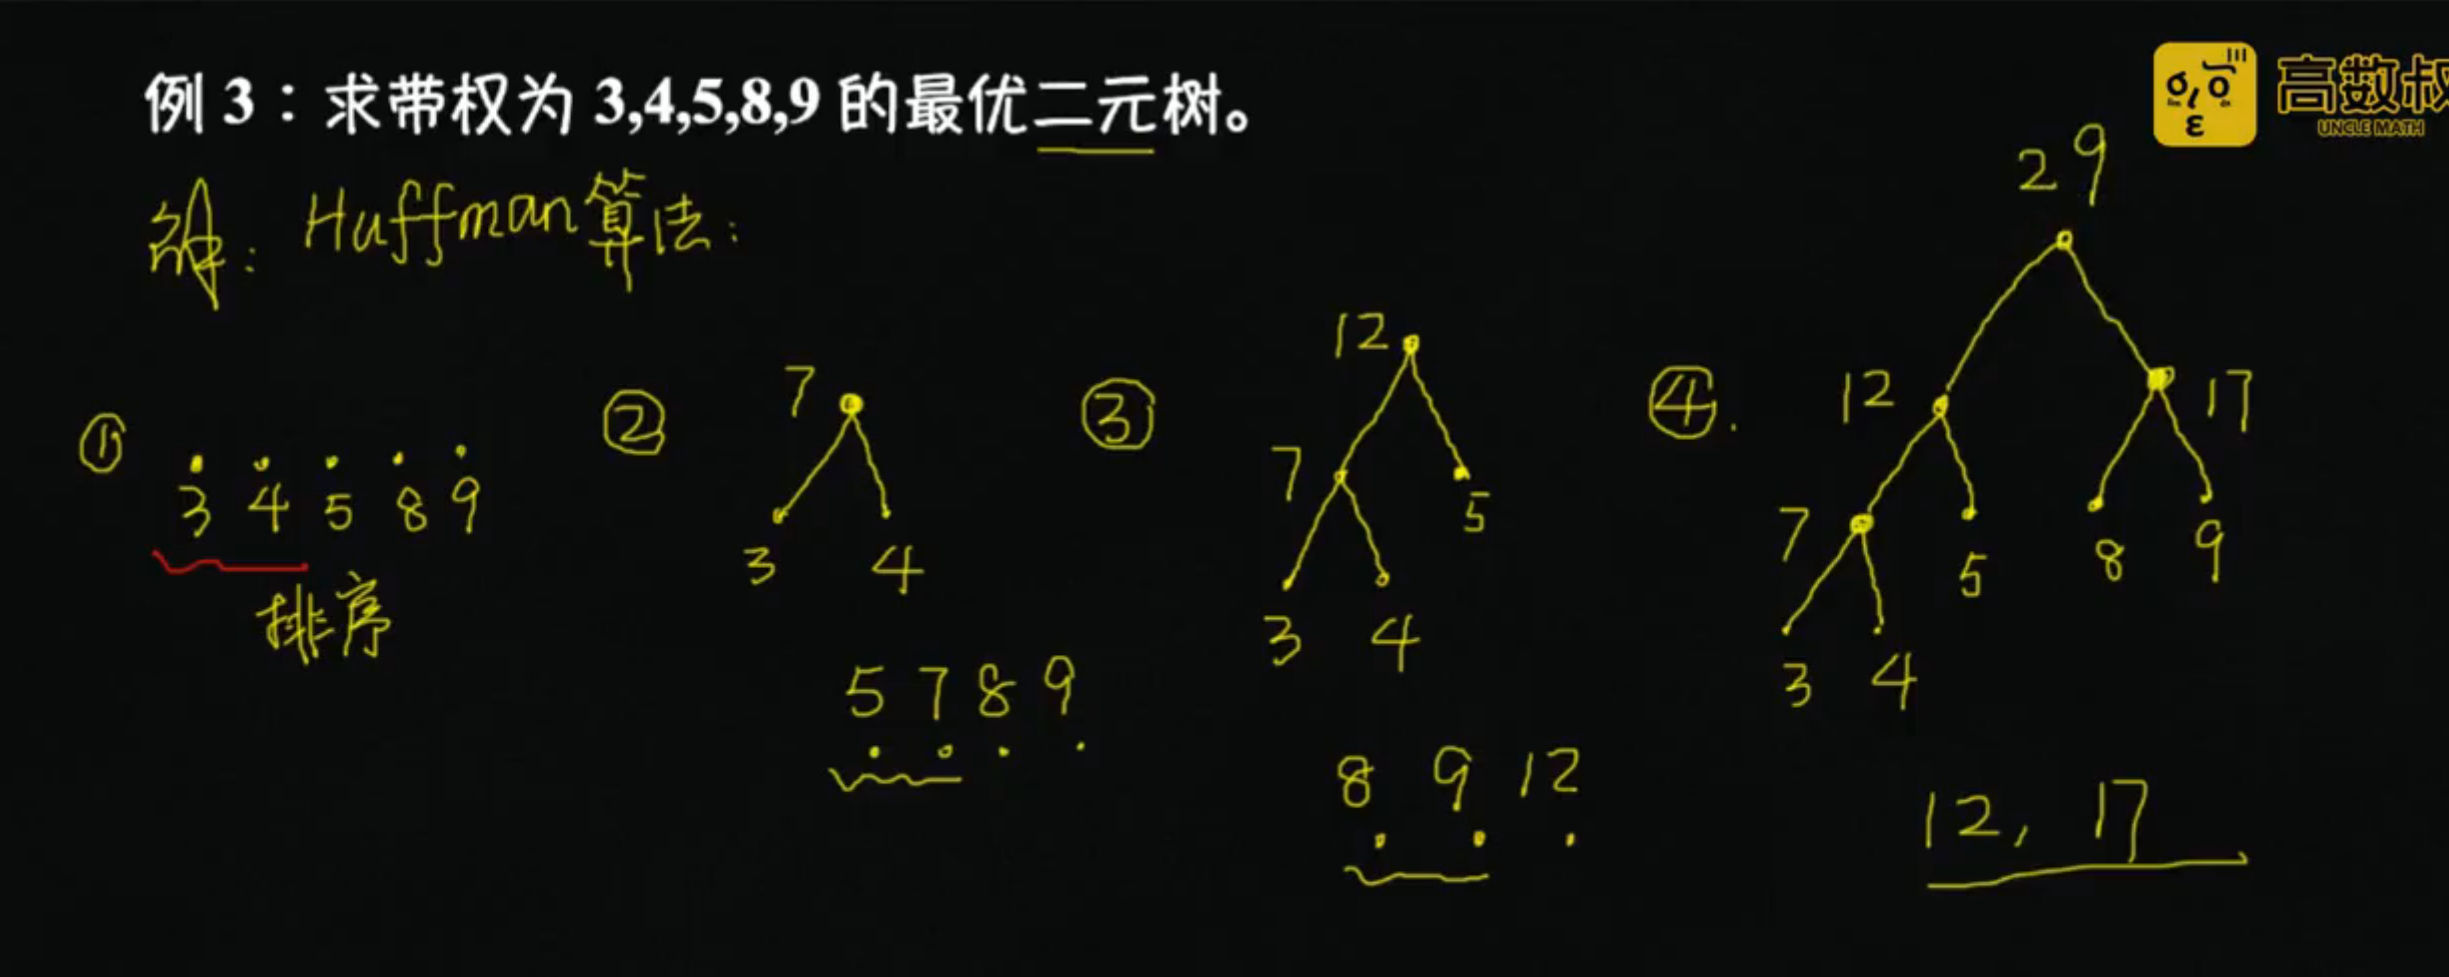 例 3：求带权为 3,4,5,8,9 的最优二元树。
高数叔
UNCLE MATH
解: Huffman算法:
①
3 4 5 8 9
排序
②
7
3 4
5 7 8 9
③
12
7 5
3 4
8 9 12
④.
29
12 17
7 5 8 9
3 4
12, 17